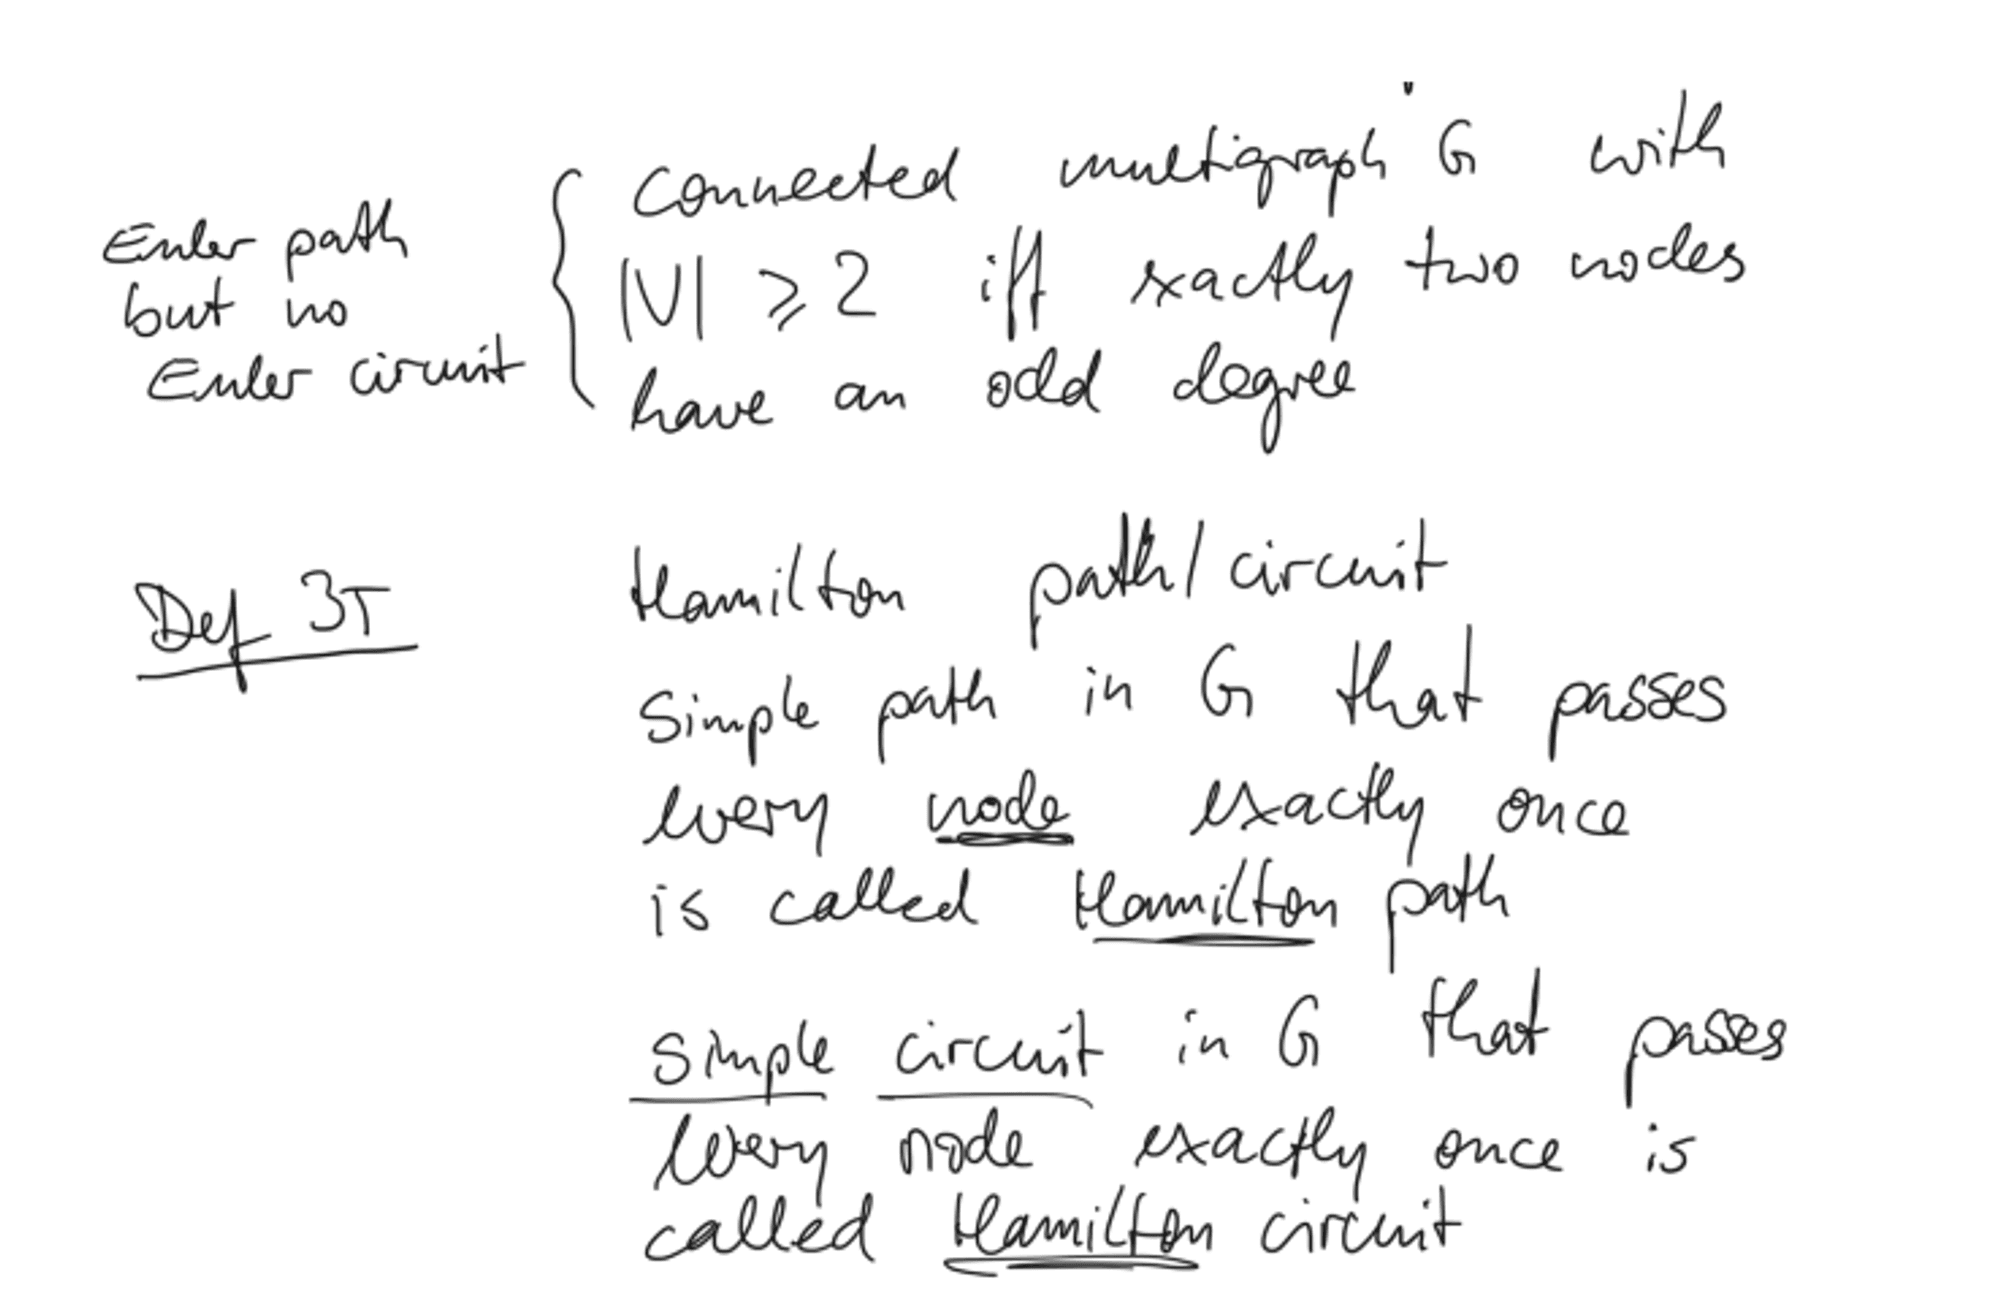 Euler path
but no
Euler circuit
connected multigraph G with
|V| ⩾ 2 iff exactly two nodes
have an odd degree
Def 3T
Hamilton path/circuit
Simple path in G that passes
every node exactly once
is called Hamilton path
Simple circuit in G that passes
every node exactly once is
called Hamilton circuit